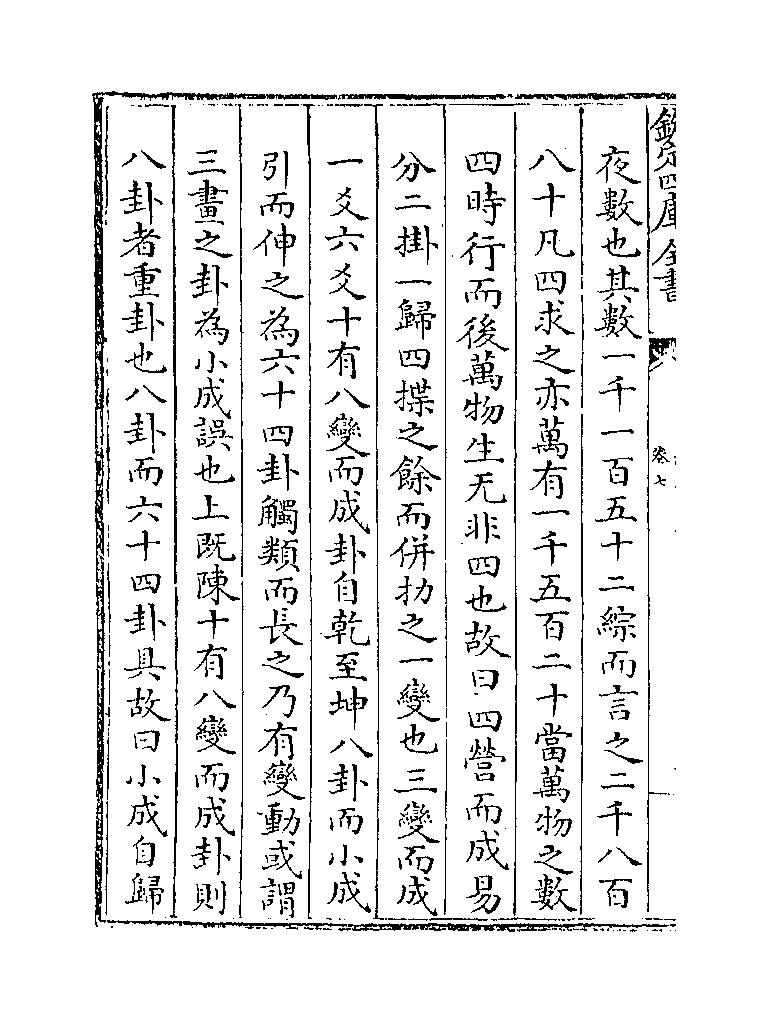 欽定四庫全書
卷七
夜數也其數一千一百五十二綜而言之二千八百
八十凡四求之亦萬有一千五百二十當萬物之數
四時行而後萬物生无非四也故曰四營而成易
分二掛一歸四揲之餘而併扐之一變也三變而成
一爻六爻十有八變而成卦自乾至坤八卦而小成
引而伸之為六十四卦觸類而長之乃有變動或謂
三畫之卦為小成誤也上既陳十有八變而成卦則
八卦者重卦也八卦而六十四卦具故曰小成自歸